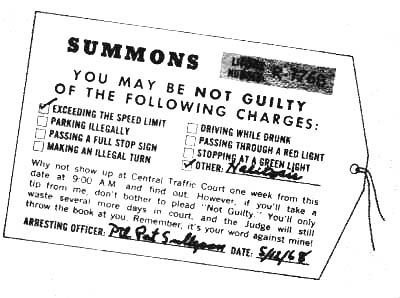 SUMMONS
YOU MAY BE NOT GUILTY
OF THE FOLLOWING CHARGES:
EXCEEDING THE SPEED LIMIT
PARKING ILLEGALLY
PASSING A FULL STOP SIGN
MAKING AN ILLEGAL TURN
DRIVING WHILE DRUNK
PASSING THROUGH A RED LIGHT
STOPPING AT A GREEN LIGHT
OTHER:
Why not show up at Central Traffic Court one week from this
date at 9:00 A.M. and find out. However, if you'll take a
tip from me, don't bother to plead "Not Guilty." You'll only
waste several more days in court, and the Judge will still
throw the book at you. Remember, it's your word against mine!
ARRESTING OFFICER: Ptl Pat DATE: 5/12/68